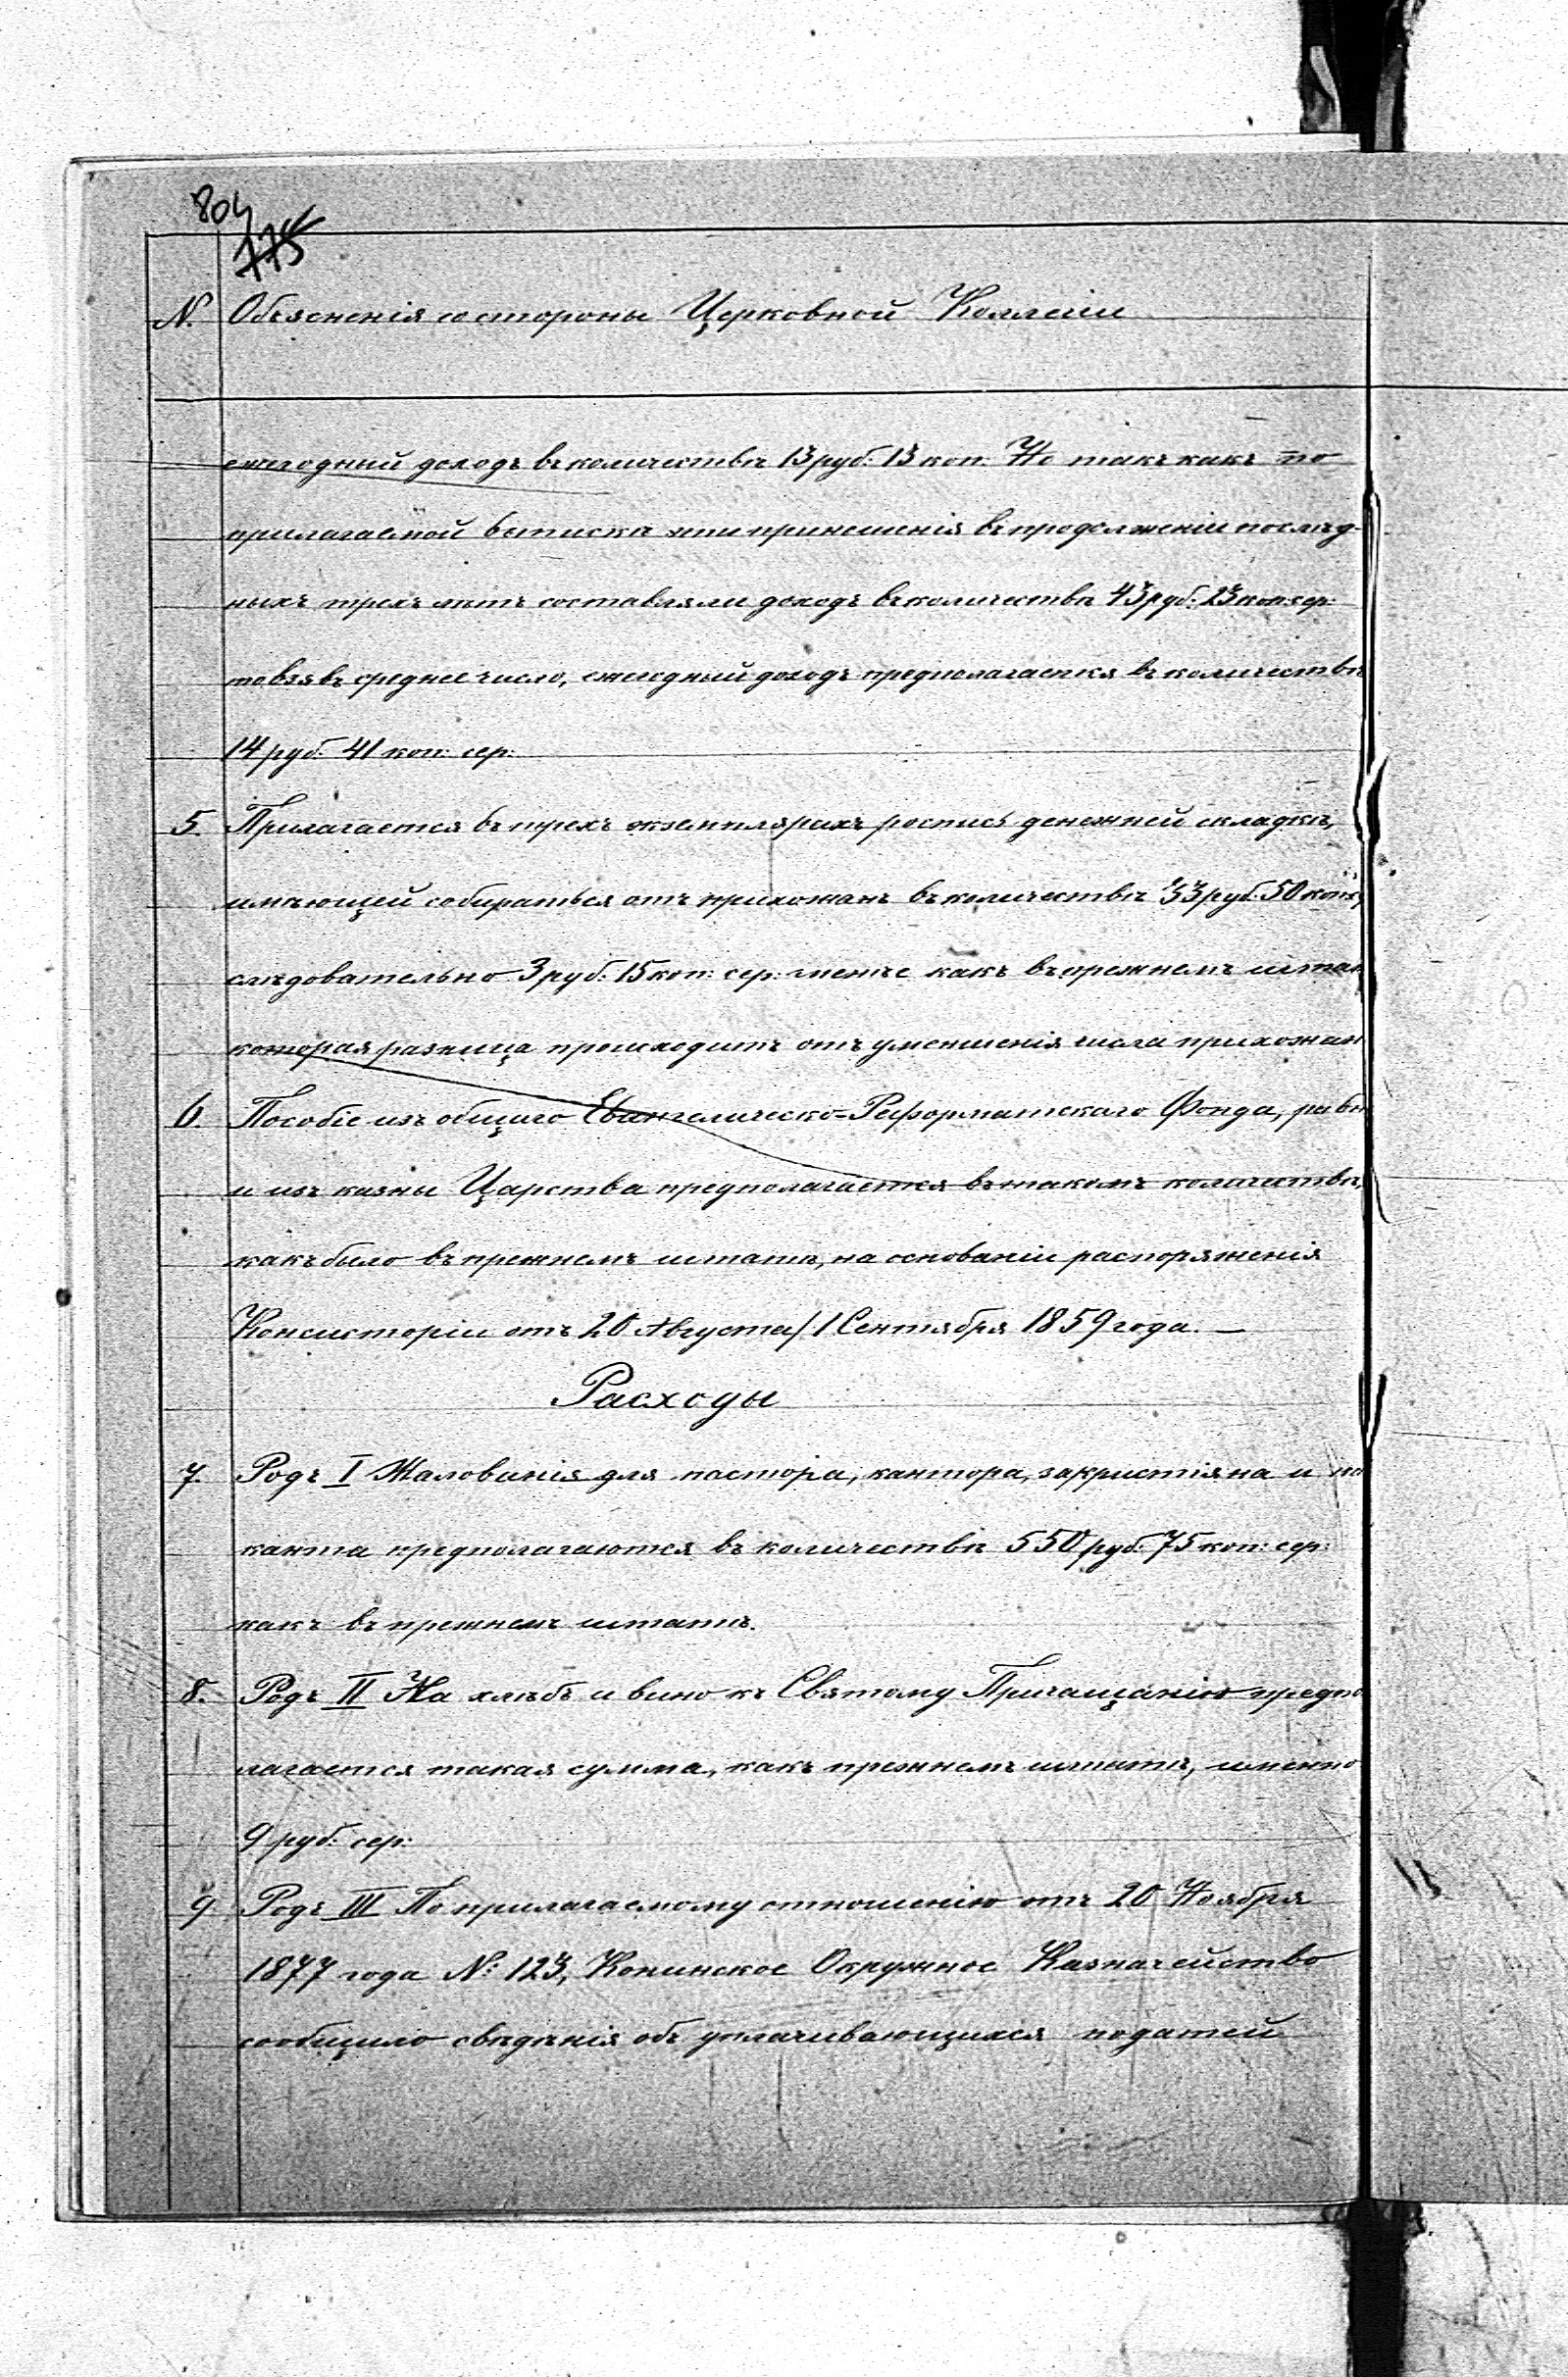 804
775
N. Объясненія со стороны Церковной Коллегіи
ежегодный доходъ въ количествѣ 13 руб: 13 коп. Но такъ какъ по
прилагаемой выпискѣ эти приношенія въ продолженіи послѣд-
ныхъ трехъ лѣтъ составляли доходъ въ количествѣ 43 руб: 23 коп: сер:
то взявъ среднее число, ежегодный доходъ предполагается въ количествѣ
14 руб: 41 коп: сер:
5. Прилагается въ трехъ экземплярахъ роспись денежней складки,
имѣющей собираться отъ прихожанъ въ количествѣ 33 руб: 50 коп:
слѣдовательно 3 руб: 15 коп: сер: менѣе какъ въ прежнемъ штат
которая разница происходитъ отъ уменшенія числа прихожан
6. Пособіе изъ общаго Евангелическо-Реформатскаго Фонда, равн
и изъ казны Царства предполагается въ такомъ количествѣ,
какъ было въ прежнемъ штатѣ, на основаніи распоряженія
Консисторіи отъ 20 Августа / 1 Сентября 1859 года. —
Расходы
7. Родъ I Жалованія для пастора, кантора, закристіяна и
канта предполагаются въ количествѣ 550 руб: 75 коп: сер:
какъ въ прежнемъ штатѣ.
8. Родъ II На хлѣбъ и вино къ Святому Причащанію предпо
лагается такая сумма, какъ прежнемъ штатѣ, именно
9 руб: сер:
9. Родъ III По прилагаемому отношенію отъ 20 Ноября
1877 года №: 123, Конинское Окружное Казначейство
сообщило свѣдѣнія объ уплачивающихся податей